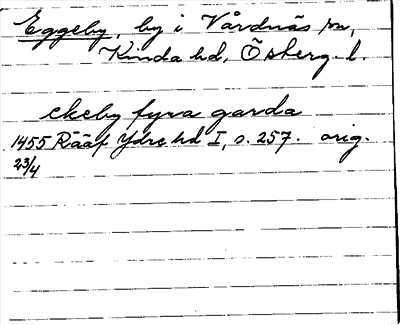 Eggeby, by i Vårdnäs sn,
Kinda hd, Österg. l.
ekeby fyra garda
1455 Rääf Ydre hd I, s. 257. orig.
23/4